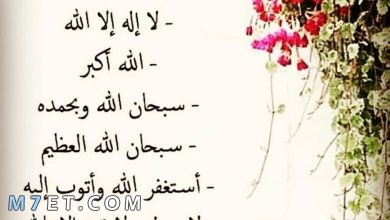 - لا إله إلا الله
- الله أكبر
- سبحان الله وبحمده
- سبحان الله العظيم
- أستغفر الله وأتوب إليه
M7ET.COM